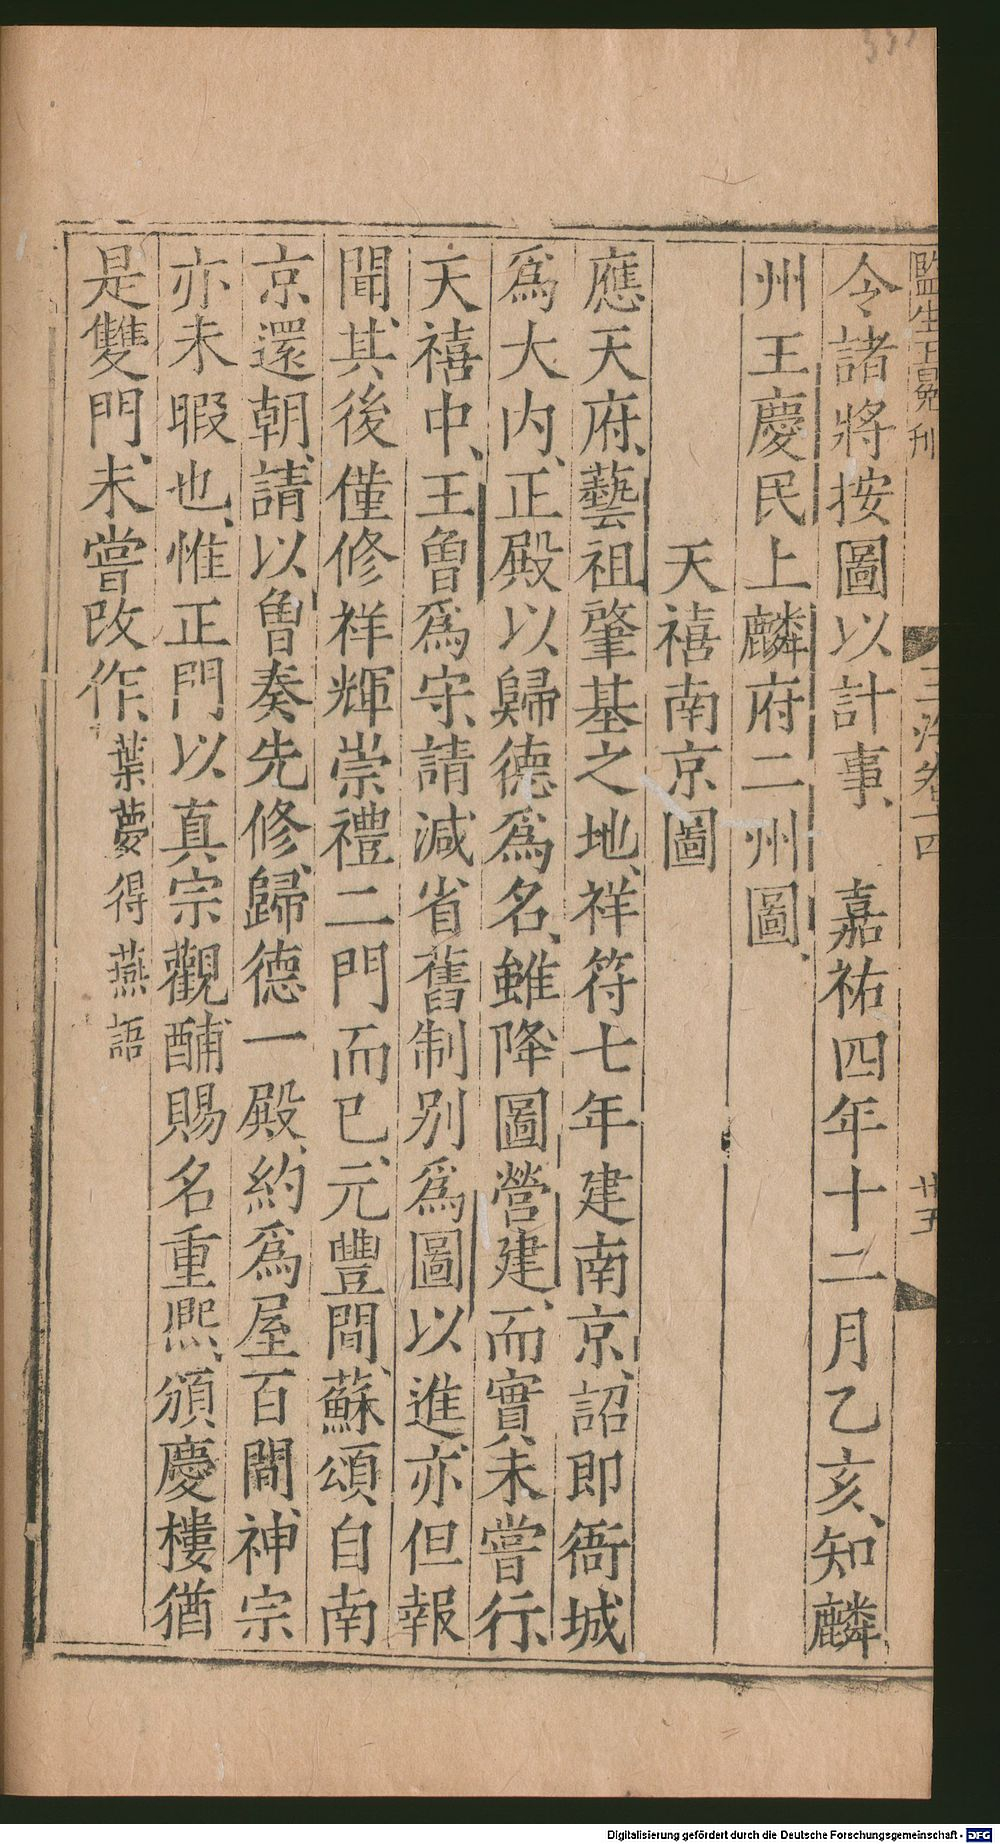 令諸將按圖以計事、 嘉祐四年十二月乙亥、知麟
州王慶民上麟府二州圖、
天禧南京圖
應天府、藝祖肇基之地、祥符七年建南京、詔即衙城
爲大内、正殿以歸德爲名、雖降圖營建、而實未嘗行、
天禧中、王曾爲守、請減省舊制别爲圖以進亦但報
聞、其後僅修祥輝崇禮二門而已、元豐間、蘇頌自南
京還朝、請以曾奏先修、歸德一殿、約爲屋百間、神宗
亦未暇也、惟正門以真宗觀酺賜名重熙、頒慶樓猶
是雙門、未嘗改作、葉夢得燕語
玉海卷十四
廿五
Digitalisierung gefördert durch die Deutsche Forschungsgemeinschaft - DFG